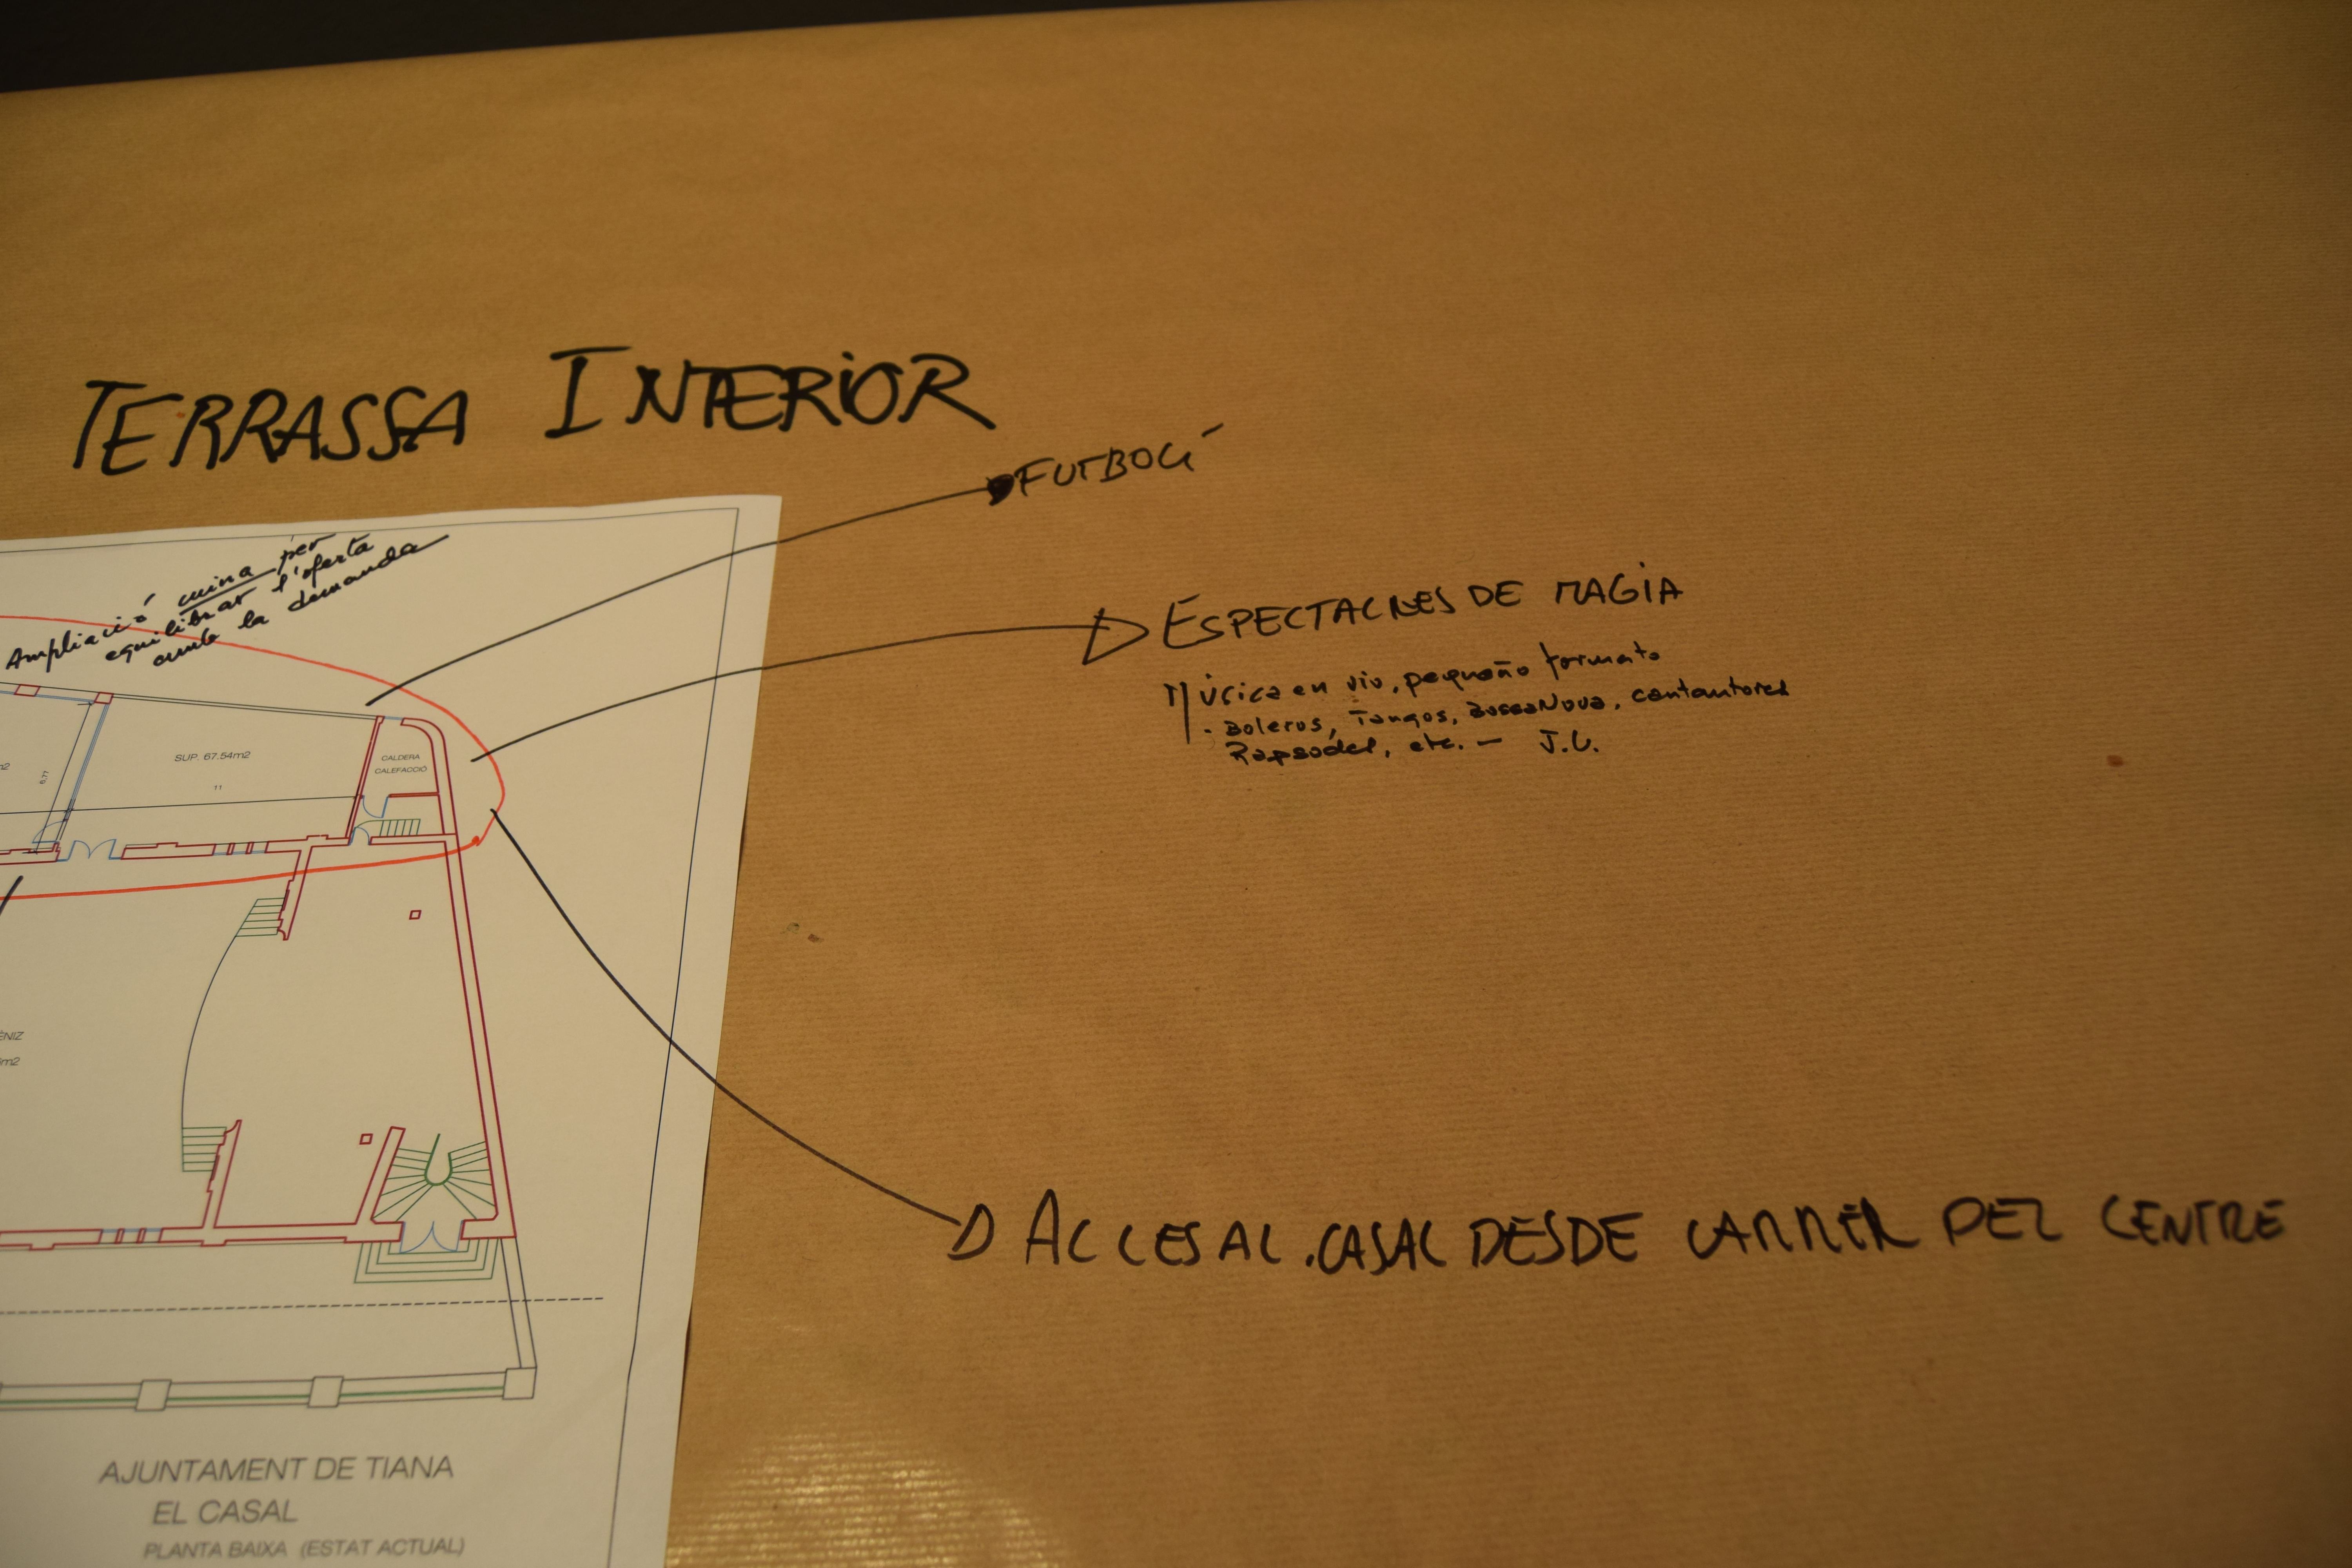 TERRASSA INTERIOR
FUTBOLÍ
Ampliació cuina per
equilibrar l'oferta
amb la demanda
ESPECTACLES DE MAGIA
Música en viv, pequeño formato
- Boleros, Tangos, BossaNova, cantautores
Rapsodes, etc. - J.C.
m2
6,77
SUP. 67.54m2
11
CALDERA
CALEFACCIÓ
ÈNIZ
m2
ACCES AL CASAL DESDE CARRER DEL CENTRE
AJUNTAMENT DE TIANA
EL CASAL
PLANTA BAIXA (ESTAT ACTUAL)